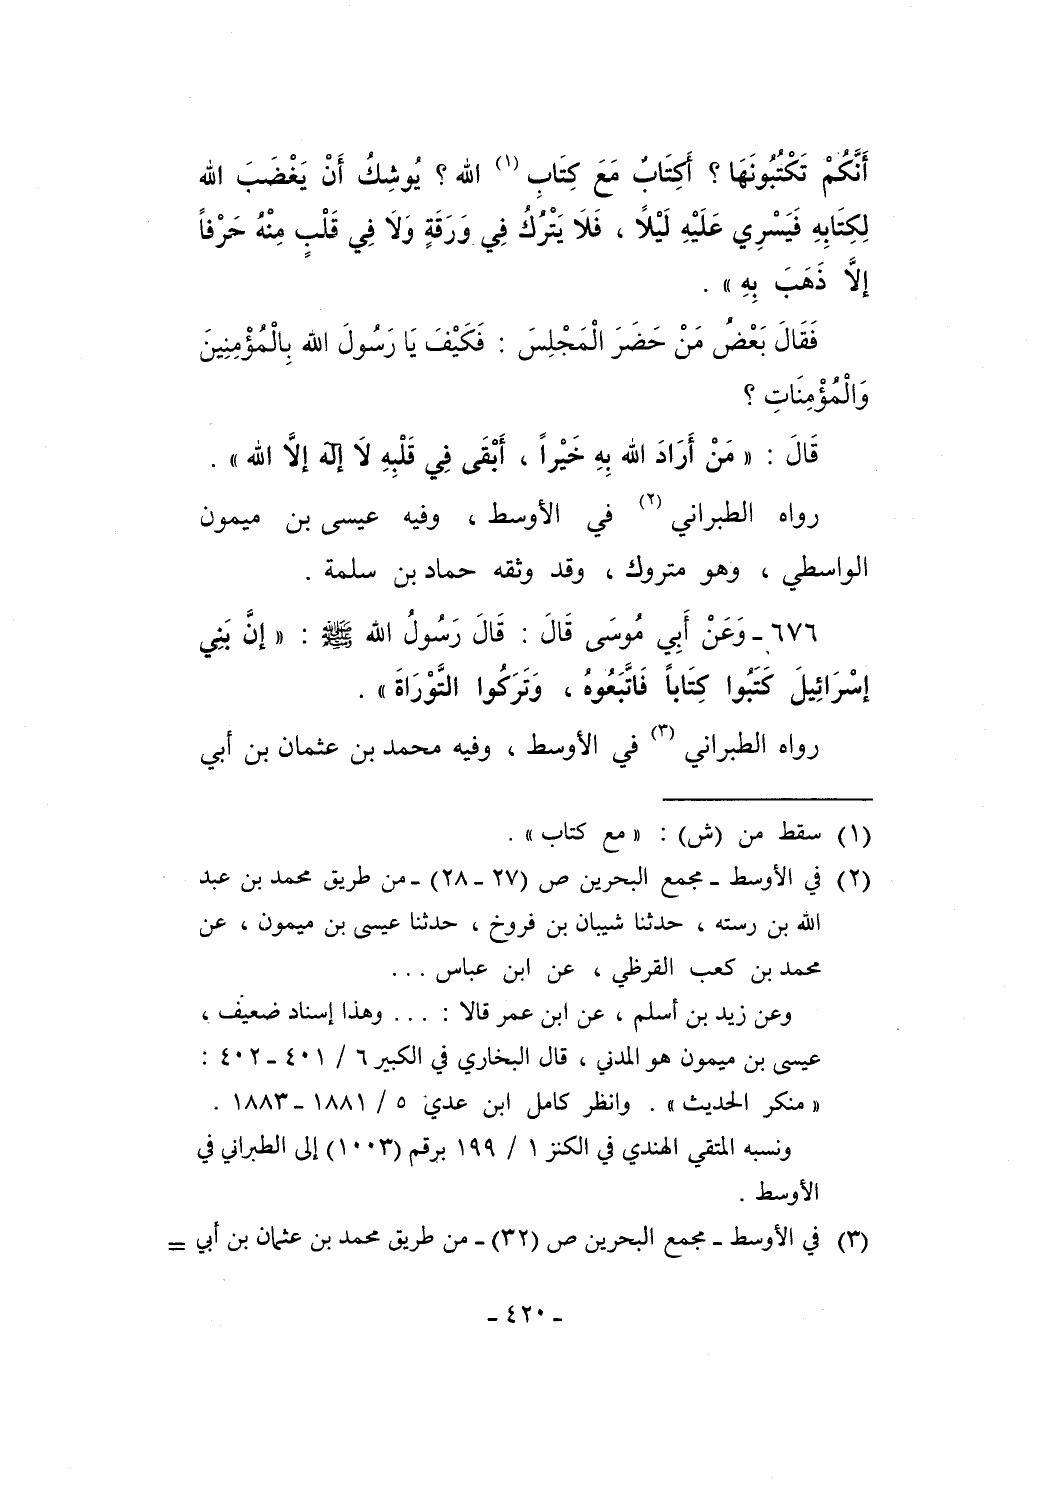 أَنَّكُمْ تَكْتُبُونَهَا ؟ أَكِتَابٌ مَعَ كِتَابِ (١) الله ؟ يُوشِكُ أَنْ يَغْضَبَ الله
لِكِتَابِهِ فَيَسْرِي عَلَيْهِ لَيْلًا ، فَلَا يَتْرُكُ فِي وَرَقَةٍ وَلَا فِي قَلْبٍ مِنْهُ حَرْفاً
إلَّا ذَهَبَ بِهِ » .
فَقَالَ بَعْضُ مَنْ حَضَرَ الْمَجْلِسَ : فَكَيْفَ يَا رَسُولَ الله بِالْمُؤْمِنِينَ
وَالْمُؤْمِنَاتِ ؟
قَالَ : « مَنْ أَرَادَ الله بِهِ خَيْراً ، أَبْقَى فِي قَلْبِهِ لَا إلَهَ إلَّا الله » .
رواه الطبراني (٢) في الأوسط ، وفيه عيسى بن ميمون
الواسطي ، وهو متروك ، وقد وثقه حماد بن سلمة .
٦٧٦ - وَعَنْ أَبِي مُوسَى قَالَ : قَالَ رَسُولُ الله ﷺ : « إنَّ بَنِي
إسْرَائِيلَ كَتَبُوا كِتَاباً فَاتَّبَعُوهُ ، وَتَرَكُوا التَّوْرَاةَ » .
رواه الطبراني (٣) في الأوسط ، وفيه محمد بن عثمان بن أبي
(١) سقط من (ش) : « مع كتاب » .
(٢) في الأوسط - مجمع البحرين ص (٢٧ - ٢٨) - من طريق محمد بن عبد
الله بن رسته ، حدثنا شيبان بن فروخ ، حدثنا عيسى بن ميمون ، عن
محمد بن كعب القرظي ، عن ابن عباس ...
وعن زيد بن أسلم ، عن ابن عمر قالا : ... وهذا إسناد ضعيف ،
عيسى بن ميمون هو المدني ، قال البخاري في الكبير ٦ / ٤٠١ - ٤٠٢ :
« منكر الحديث » . وانظر كامل ابن عدي ٥ / ١٨٨١ - ١٨٨٣ .
ونسبه المتقي الهندي في الكنز ١ / ١٩٩ برقم (١٠٠٣) إلى الطبراني في
الأوسط .
(٣) في الأوسط - مجمع البحرين ص (٣٢) - من طريق محمد بن عثمان بن أبي =
- ٤٢٠ -